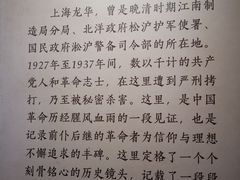 上海龙华，曾是晚清时期江南制
造局分局、北洋政府淞沪护军使署、
国民政府淞沪警备司令部的所在地。
1927年至1937年间，数以千计的共产
党人和革命志士，在这里遭到严刑拷
打，乃至被秘密杀害。这里，是中国
革命历经腥风血雨的一段见证，也是
记录前仆后继的革命者为信仰与理想
不懈追求的丰碑。这里定格了一个个
刻骨铭心的历史镜头，记载了一段段